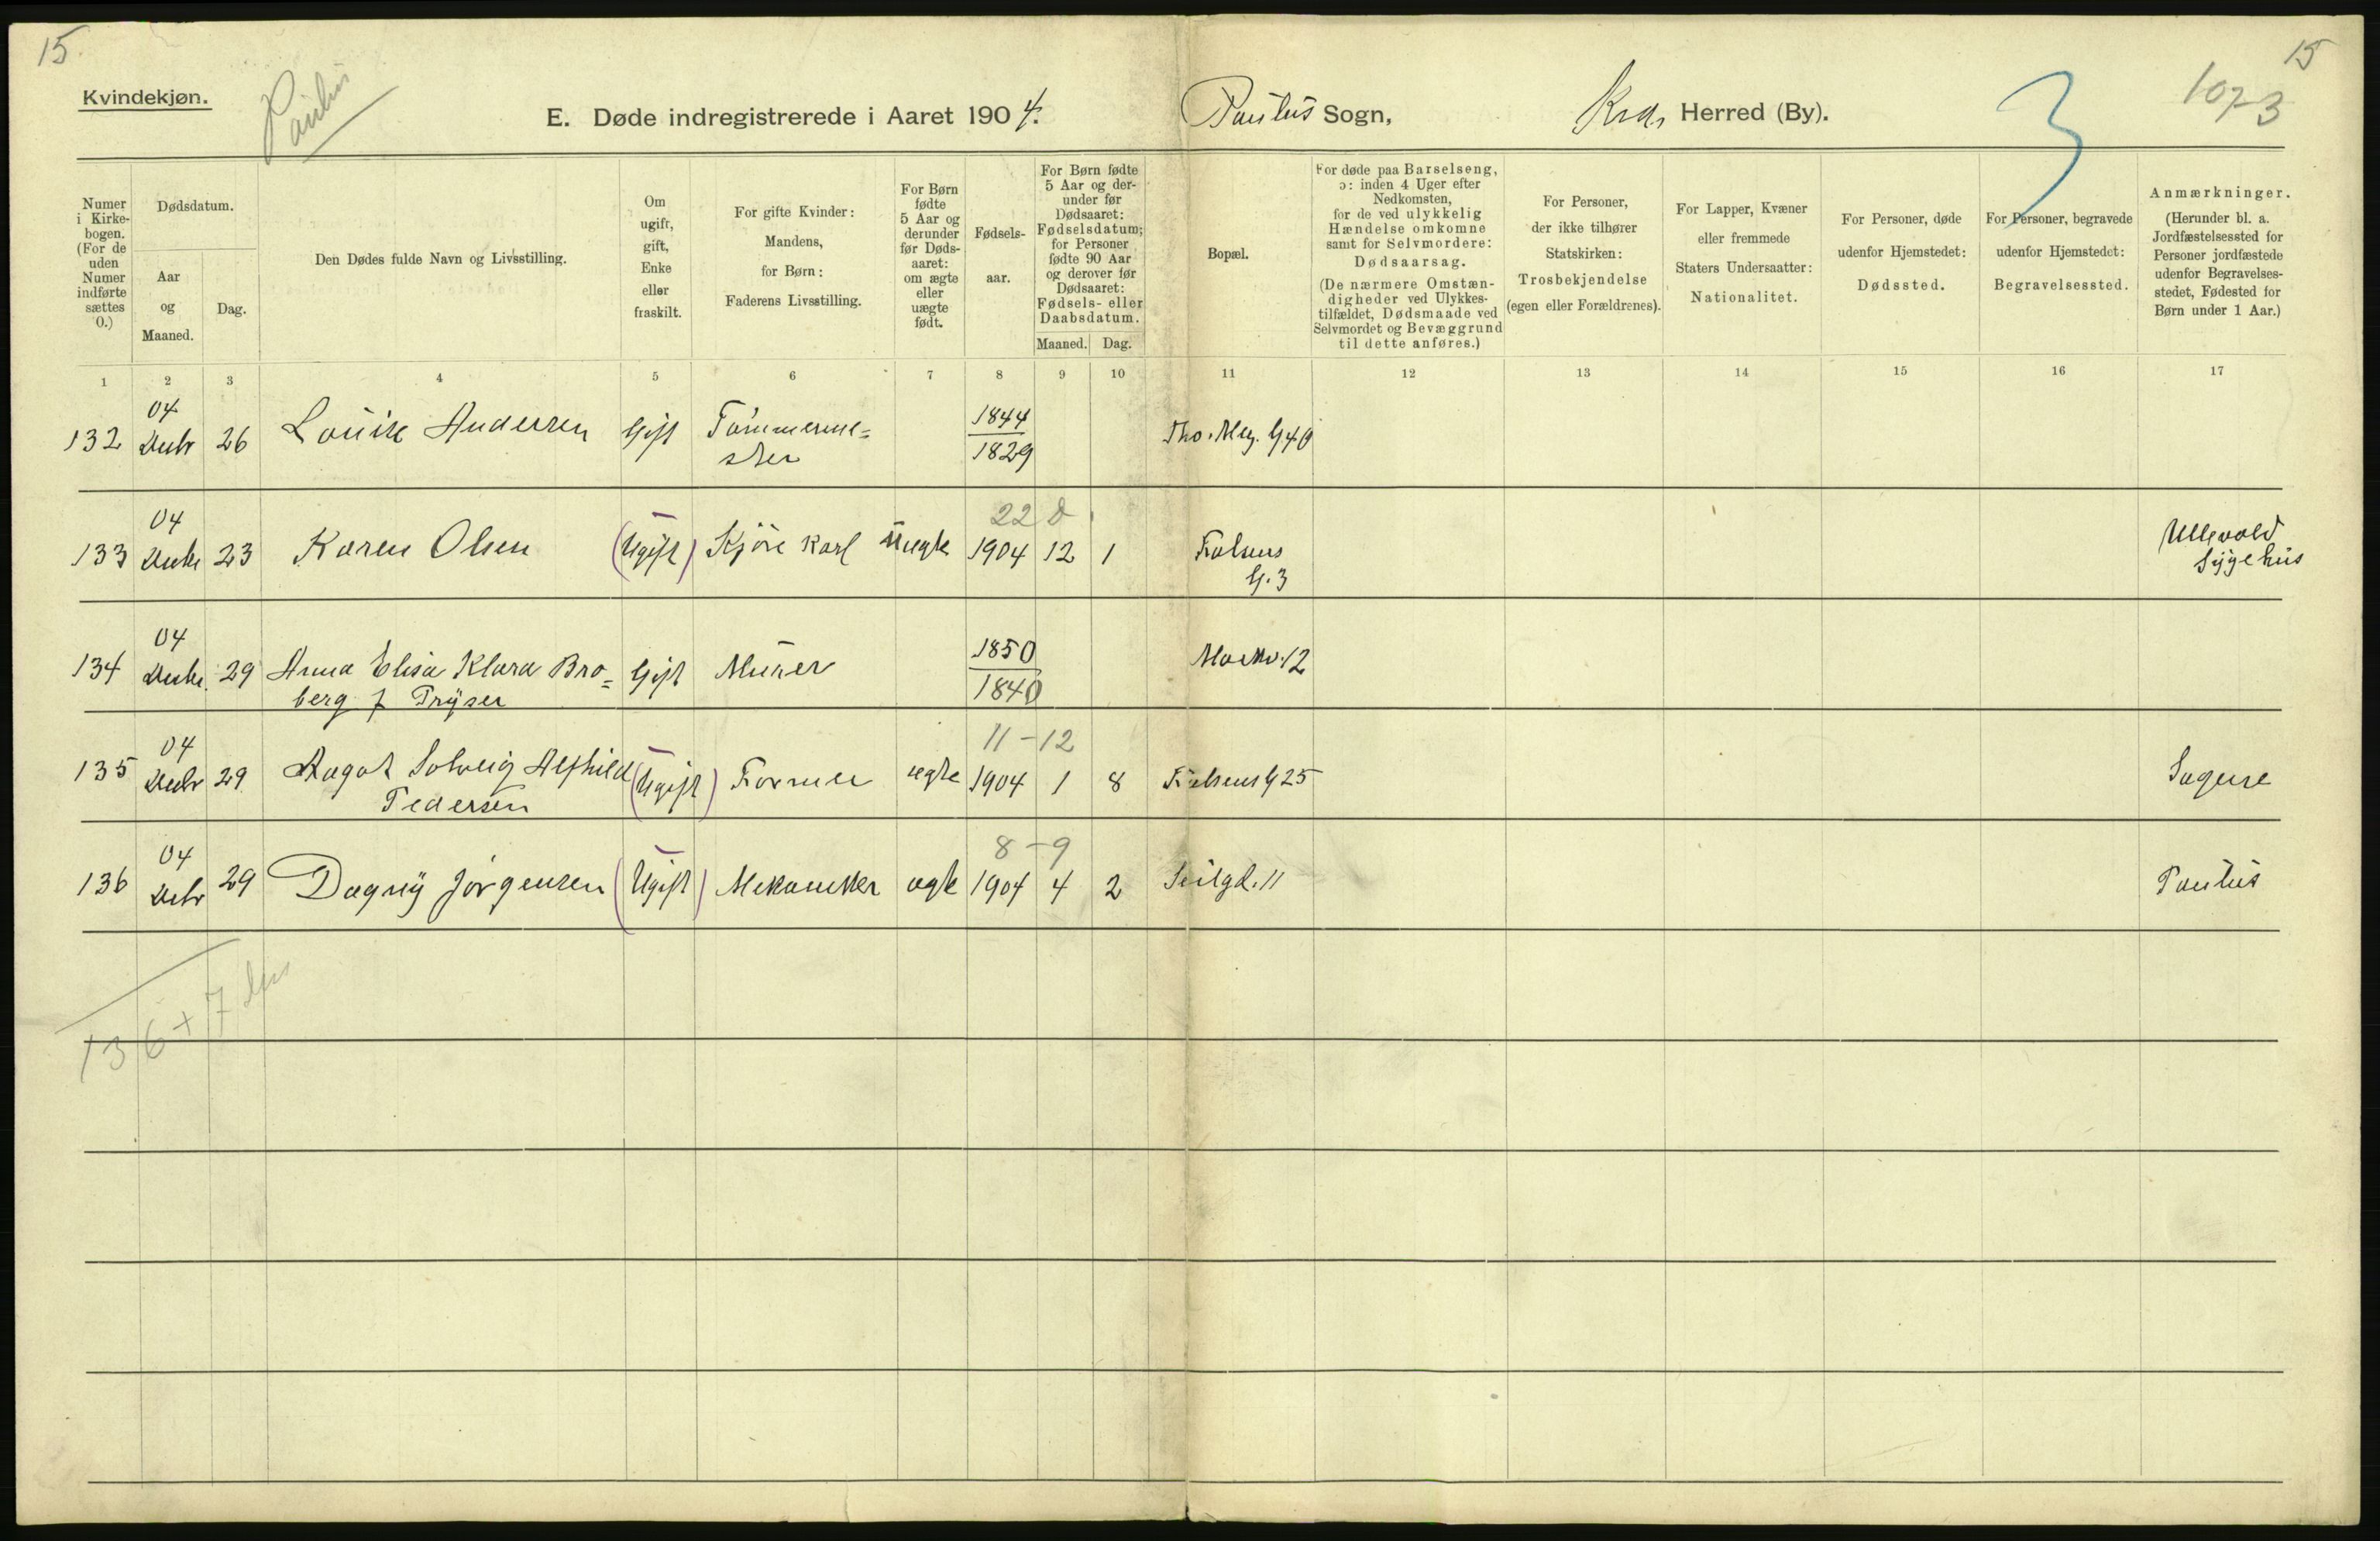 15.
15
1073
3
Kvindekjøn.
Paulus
E. Døde indregistrerede i Aaret 1904.
Paulus Sogn,
Kra. Herred (By).
Numer
i Kirke-
bogen.
(For de
uden
Numer
indførte
sættes
0.)
Dødsdatum.
Aar
og
Maaned.
Dag.
Den Dødes fulde Navn og Livsstilling.
Om
ugift,
gift,
Enke
eller
fraskilt.
For gifte Kvinder:
Mandens,
for Børn:
Faderens Livsstilling.
For Børn
fødte
5 Aar og
derunder
før Døds-
aaret:
om ægte
eller
uægte
født.
Fødsels-
aar.
For Børn fødte
5 Aar og der-
under før
Dødsaaret:
Fødselsdatum;
for Personer
fødte 90 Aar
og derover før
Dødsaaret:
Fødsels- eller
Daabsdatum.
Maaned. Dag.
Bopæl.
For døde paa Barselseng,
ɔ: inden 4 Uger efter
Nedkomsten,
for de ved ulykkelig
Hændelse omkomne
samt for Selvmordere:
Dødsaarsag.
(De nærmere Omstæn-
digheder ved Ulykkes-
tilfældet, Dødsmaade ved
Selvmordet og Bevæggrund
til dette anføres.)
For Personer,
der ikke tilhører
Statskirken:
Trosbekjendelse
(egen eller Forældrenes).
For Lapper, Kvæner
eller fremmede
Staters Undersaatter:
Nationalitet.
For Personer, døde
udenfor Hjemstedet:
Dødssted.
For Personer, begravede
udenfor Hjemstedet:
Begravelsessted.
Anmærkninger.
(Herunder bl. a.
Jordfæstelsessted for
Personer jordfæstede
udenfor Begravelses-
stedet, Fødested for
Børn under 1 Aar.)
1 2 3 4 5 6 7 8 9 10 11 12 13 14 15 16 17
04 1844
132 26 Louise Andersen Gift Tømmerme= Tho. Mey. G 40
ster 1829
04 22 d
133 23 Karen Olsen (Ugift) Kjøre karl uegte 1904 12 1 Ullevold
G. 3 Sygehus
04 1850
134 29 Anna Elisa Klara Bro= Gift Murer 12
berg f Prÿser 1840
04 11-12
135 29 Aagot Solveig Alfhild (Ugift) Former egte 1904 1 8 G 25 Sagene
Pedersen
04 8-9
136 29 Dagnÿ Jørgensen (Ugift) Mekaniker egte 1904 4 2 Seilgd. 11 Paulus
136 + 7